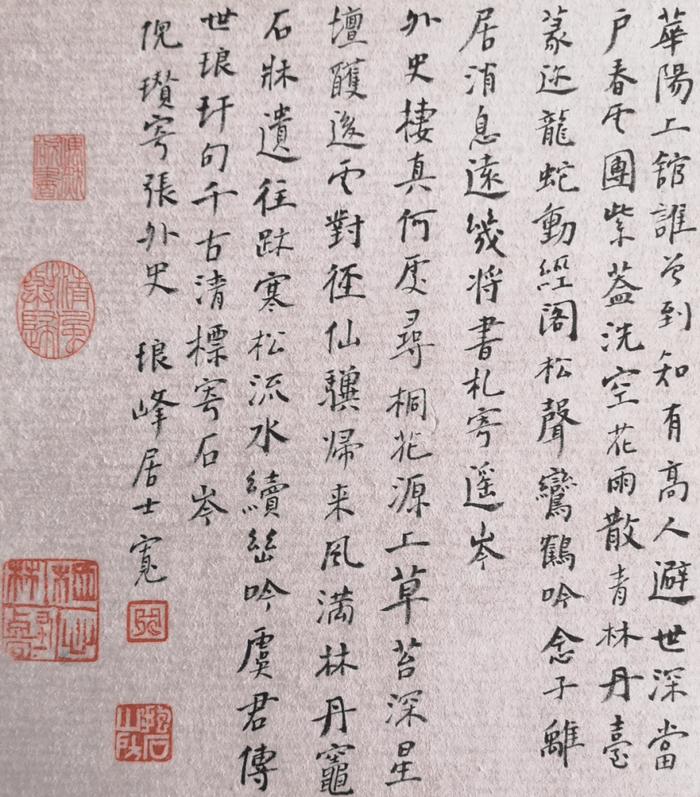 華陽上館誰曾到知有高人避世深當
戶春雲團紫蓋洗空花雨散青林丹臺
篆迹龍蛇動經閣松聲鸞鶴吟念子離
居消息遠幾將書札寄遥岑
外史棲真何處尋桐花源上草苔深星
壇護邊雲對径仙驥帰来风满林丹竈
石牀遺往跡寒松流水續幽吟虞君傳
世琅玕句千古清標寄石岑
倪瓚寄張外史 琅峰居士寬